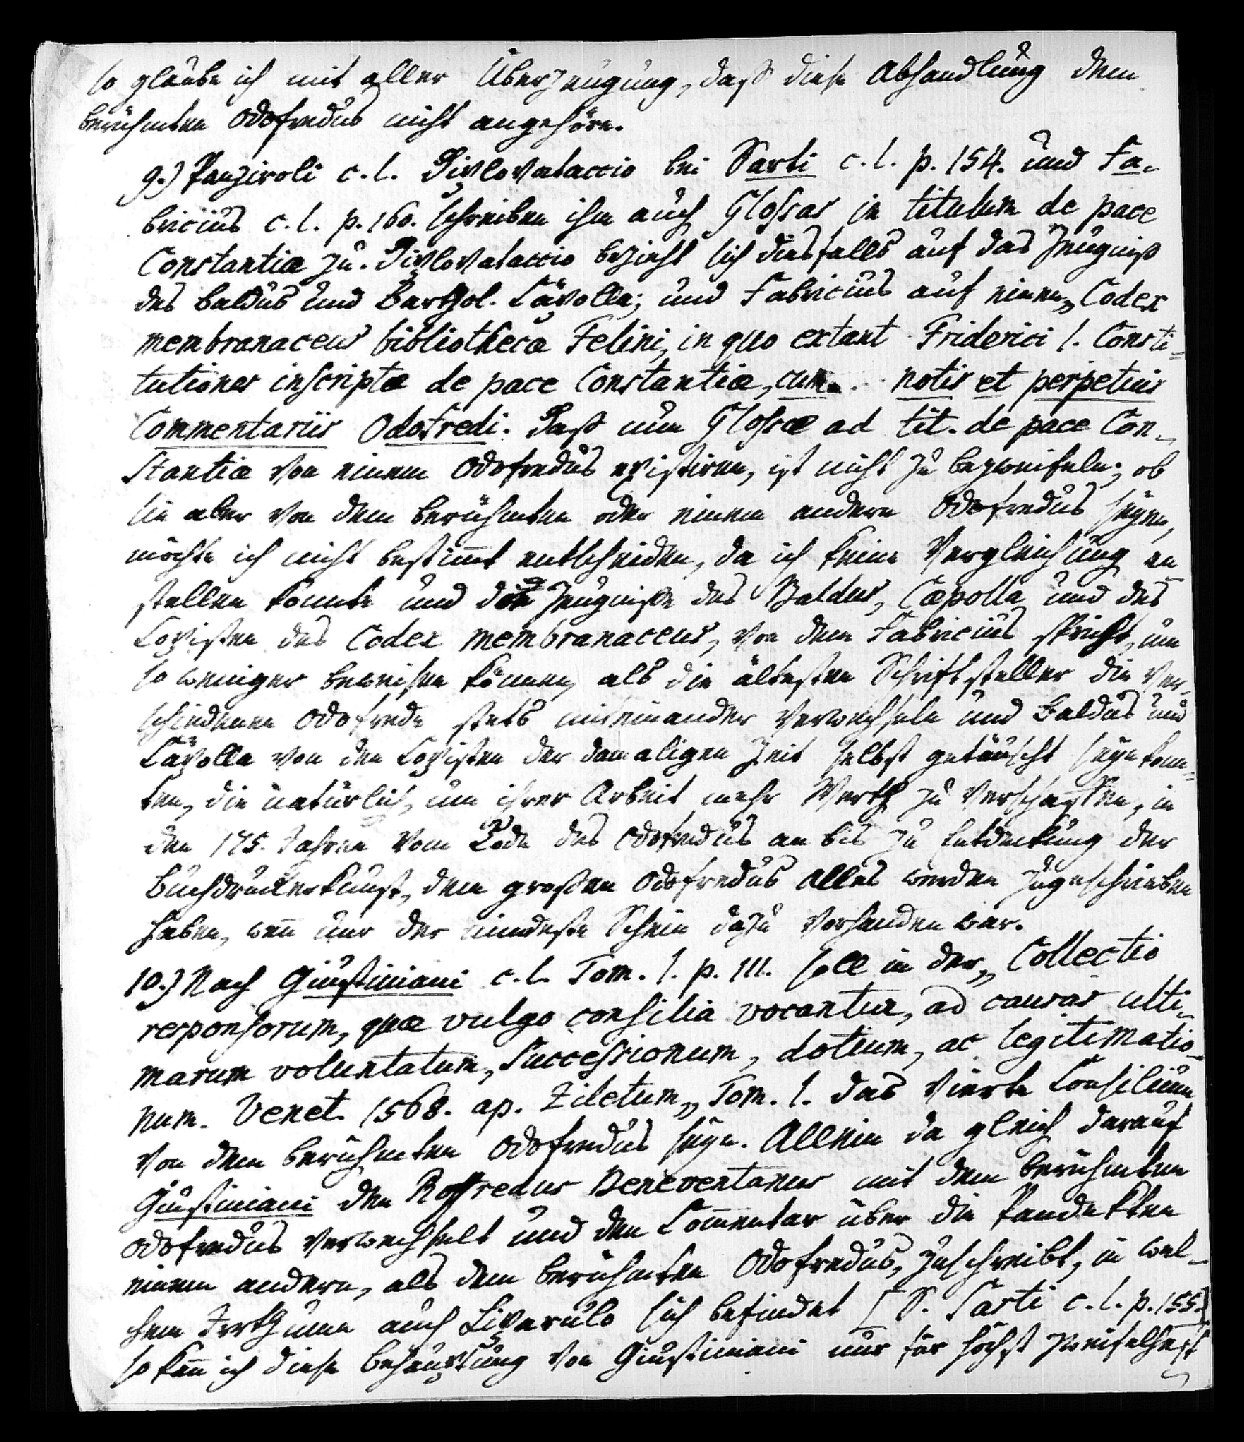 so glaube ich mit aller Überzeugung, daß diese Abhandlung dem
berühmten Odofredus nicht angehöre.
9.) Panziroli c. l. Diplovataccio bei Sarti c. l. p. 154. und Fa-
bricius c. l. p. 160. schreiben ihm auch Glossas in titulum de pace
Constantiæ zu. Diplovataccio bezieht sich diesfalls auf das Zeugniß
des Baldus und Barthol. Cäpolla; und Fabricius auf einen „Codex
membranaceus bibliothecæ Felini, in quo extant Friderici I. Consti-
tutiones inscriptæ de pace Constantiæ, cum notis et perpetuis
Commentariis Odofredi. Daß nun Glossæ ad tit. de pace Con-
stantiæ von einem Odofredus existiren, ist nicht zu bezweifeln; ob
sie aber von dem berühmten oder einem andern Odofredus seyen,
möchte ich nicht bestimt entscheiden, da ich keine Vergleichung an
stellen konnte und die Zeugniße des Baldus, Cæpolla und des
Copisten des Codex membranaceus, von dem Fabricius spricht, um
so weniger beweisen können, als die ältesten Schriftsteller die ver-
schiedenen Odofrede stets miteinander verwechseln und Baldus und
Cäpolla von den Copisten der damaligen Zeit selbst getäuscht seyn konn-
ten, die natürlich, um ihrer Arbeit mehr Werth zu verschaffen, in
den 175 Jahren vom Tode des Odofredus an bis zu Entdeckung der
Buchdruckerkunst, dem großen Odofredus alles werden zugeschrieben
haben, wen nur der mindeste Schein dazu vorhanden war.
10.) Nach Giustiniani c. l. Tom. I. p. 111. soll in der „Collectio
responsorum, quæ vulgo consilia vocantur, ad causas ulti-
marum voluntatum, successionum, dotium, ac legitimatio-
num. Venet. 1568. ap. Ziletum„ Tom. I. das vierte Consilium
von dem berühmten Odofredus seyn. Allein da gleich darauf
Giustiniani den Roffredus Beneventanus mit dem berühmten
Odofredus verwechselt und den Comentar über die Pandekten
einem andern, als dem berühmten Odofredus, zuschreibt, in wel-
chem Irrthume auch Liparulo sich befindet [S. Sarti c. l. p. 155.]
so kan ich diese Behauptung von Giustiniani nur für höchst zweifelhaft